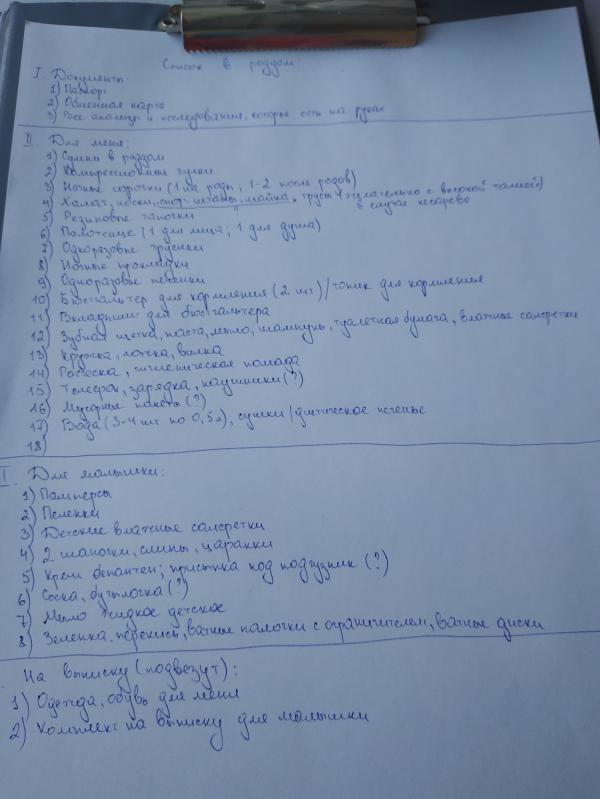 Список в роддом:
I. Документы:
1) Паспорт
2) Обменная карта
3) Все анализы и исследования, которые есть на руках
II. Для меня:
1) Сумки в роддом
2) Компрессионные чулки
3) Ночные сорочки (1 на роды, 1-2 после родов)
4) Халат, носки, спорт. штаны, майка, трусы (желательно с высокой талией)
в случае кесарево
5) Резиновые тапочки
6) Полотенце (1 для лица; 1 для душа)
7) Одноразовые трусики
8) Ночные прокладки
9) Одноразовые пеленки
10) Бюстгальтер для кормления (2 шт)/топик для кормления
11) Вкладыши для бюстгальтера
12) Зубная щетка, паста, мыло, шампунь, туалетная бумага, влажные салфетки
13) Кружка, ложка, вилка
14) Расческа, гигиеническая помада
15) Телефон, зарядка, наушники (?)
16) Мусорные пакеты (?)
17) Вода (3-4 шт по 0,5л), сушки/диетическое печенье
18)
I Для малышки:
1) Памперсы
2) Пеленки
3) Детские влажные салфетки
4) 2 шапочки, слипы, царапки
5) Крем бепантен; присыпка под подгузник (?)
6) Соска, бутылочка (?)
7) Мыло жидкое детское
8) Зеленка, перекись, ватные палочки с ограничителем, ватные диски
На выписку (подвезут):
1) Одежда, обувь для меня
2) Комплект на выписку для малышки